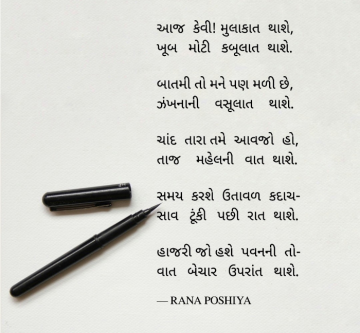 આજ કેવી! મુલાકાત થાશે,
ખૂબ મોટી કબૂલાત થાશે.
બાતમી તો મને પણ મળી છે,
ઝંખનાની વસૂલાત થાશે.
ચાંદ તારા તમે આવજો હો,
તાજ મહેલની વાત થાશે.
સમય કરશે ઉતાવળ કદાચ-
સાવ ટૂંકી પછી રાત થાશે.
હાજરી જો હશે પવનની તો-
વાત બેચાર ઉપરાંત થાશે.
— RANA POSHIYA